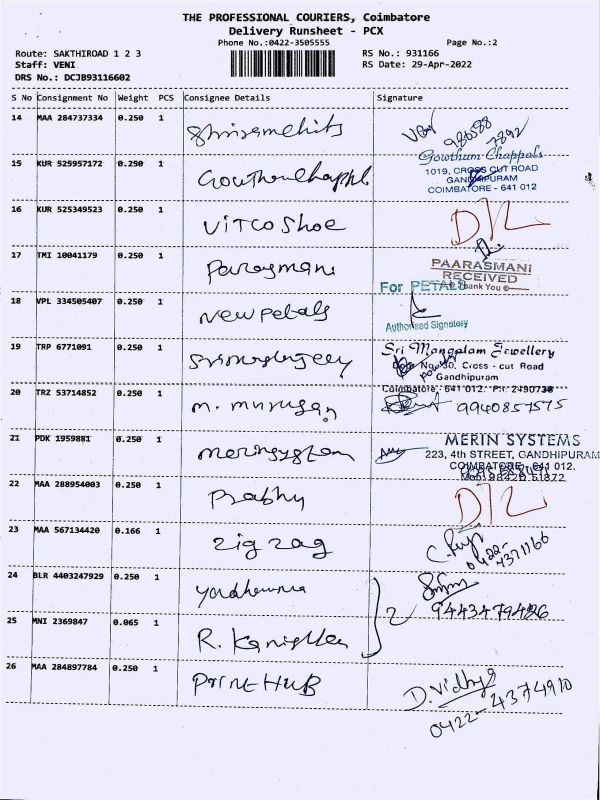 THE PROFESSIONAL COURIERS, Coimbatore
Delivery Runsheet - PCX
Phone No.:0422-3505555 Page No.:2
Route: SAKTHIROAD 1 2 3 RS No.: 931166
Staff: VENI RS Date: 29-Apr-2022
DRS No.: DCJB93116602
S No Consignment No Weight PCS Consignee Details Signature
14 MAA 284737334 0.250 1
15 KUR 525957172 0.250 1 Gowthum Chappals
1019, CROSS CUT ROAD
GANDHIPURAM
COIMBATORE - 641 012
16 KUR 525349523 0.250 1 VITCO Shoe
17 TMI 10041179 0.250 1 Parasmani PAARASMANI
RECEIVED
Thank You
18 VPL 334505407 0.250 1 New Petals For PETALS
Authorised Signatory
19 TRP 6771091 0.250 1 Sri Mangalam Jewellery
Cross - cut Road
Gandhipuram
Coimbatore - 641 012. PH: 2490738
20 TRZ 53714852 0.250 1 M. Murugan 9940857575
21 PDK 1959881 0.250 1 MERIN SYSTEMS
223, 4th STREET, GANDHIPURAM
COIMBATORE - 641 012.
22 MAA 288954003 0.250 1 Prabhu
23 MAA 567134420 0.166 1 zig zag 0422-4371166
24 BLR 4403247929 0.250 1
25 MNI 2369847 0.065 1
26 MAA 284897784 0.250 1 PRINT HUB D. Vidhya
0422-4374910